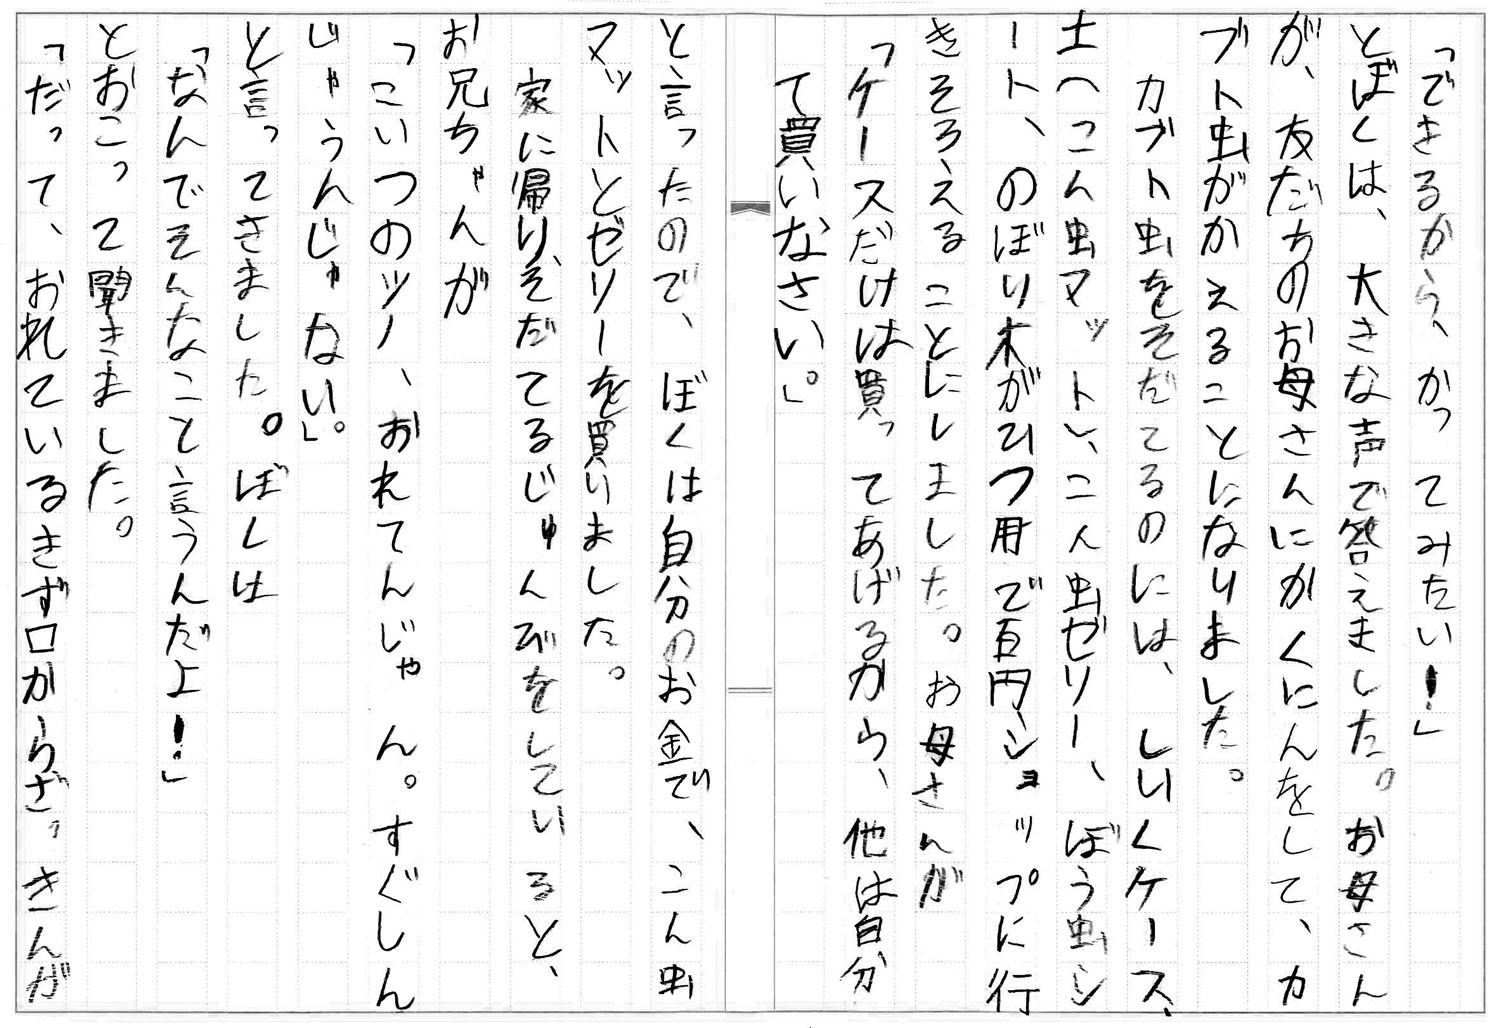 「できるから、かってみたい！」
とぼくは、大きな声で答えました。お母さん
が、友だちのお母さんにかくにんをして、カ
ブト虫がかえることになりました。
カブト虫をそだてるのには、しいくケース、
土へこん虫マット、こん虫ゼリー、ぼう虫シ
ート、のぼり木がひつ用で百円ショップに行
きそろえることにしました。お母さんが
「ケースだけは買ってあげるから、他は自分
て買いなさい。」
と言ったので、ぼくは自分のお金で、こん虫
マットとゼリーを買いました。
家に帰り、そだてるじゅんびをしていると、
お兄ちゃんが
「こいつのツノ、おれてんじゃん。すぐしん
じゃうんじゃない。」
と言ってきました。ぼくは
「なんでそんなこと言うんだよ！」
とおこって聞きました。
「だって、おれているきず口からざっきんが